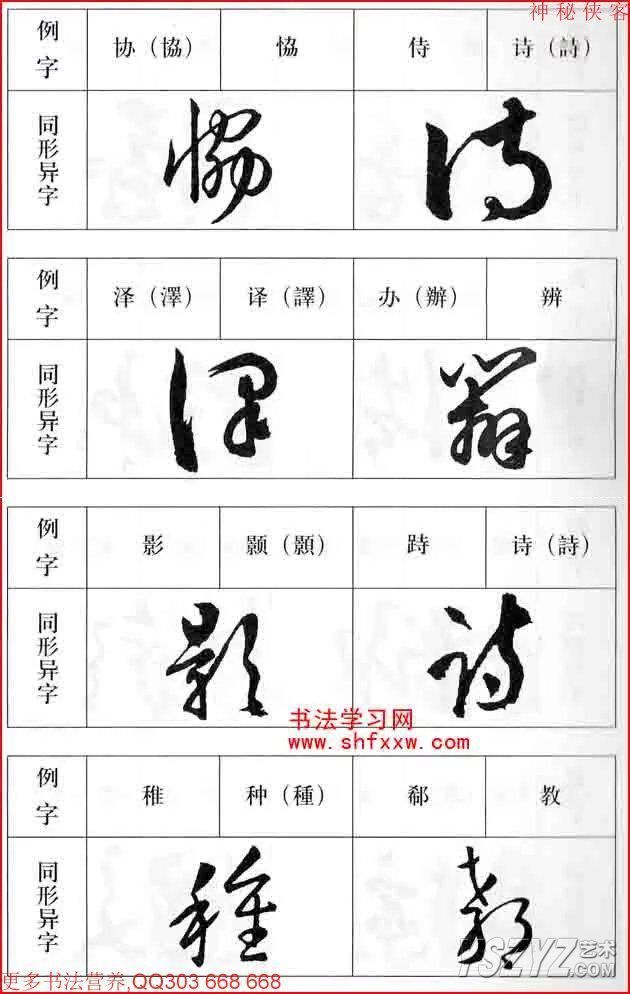 神秘侠客
例字 协（協） 恊 侍 诗（詩）
同形异字
例字 泽（澤） 译（譯） 办（辦） 辨
同形异字
例字 影 颢（顥） 跱 诗（詩）
同形异字
书法学习网
www.shfxxw.com
例字 稚 种（種） 郗 教
同形异字
YSZYZ艺术.com
更多书法营养,QQ303 668 668